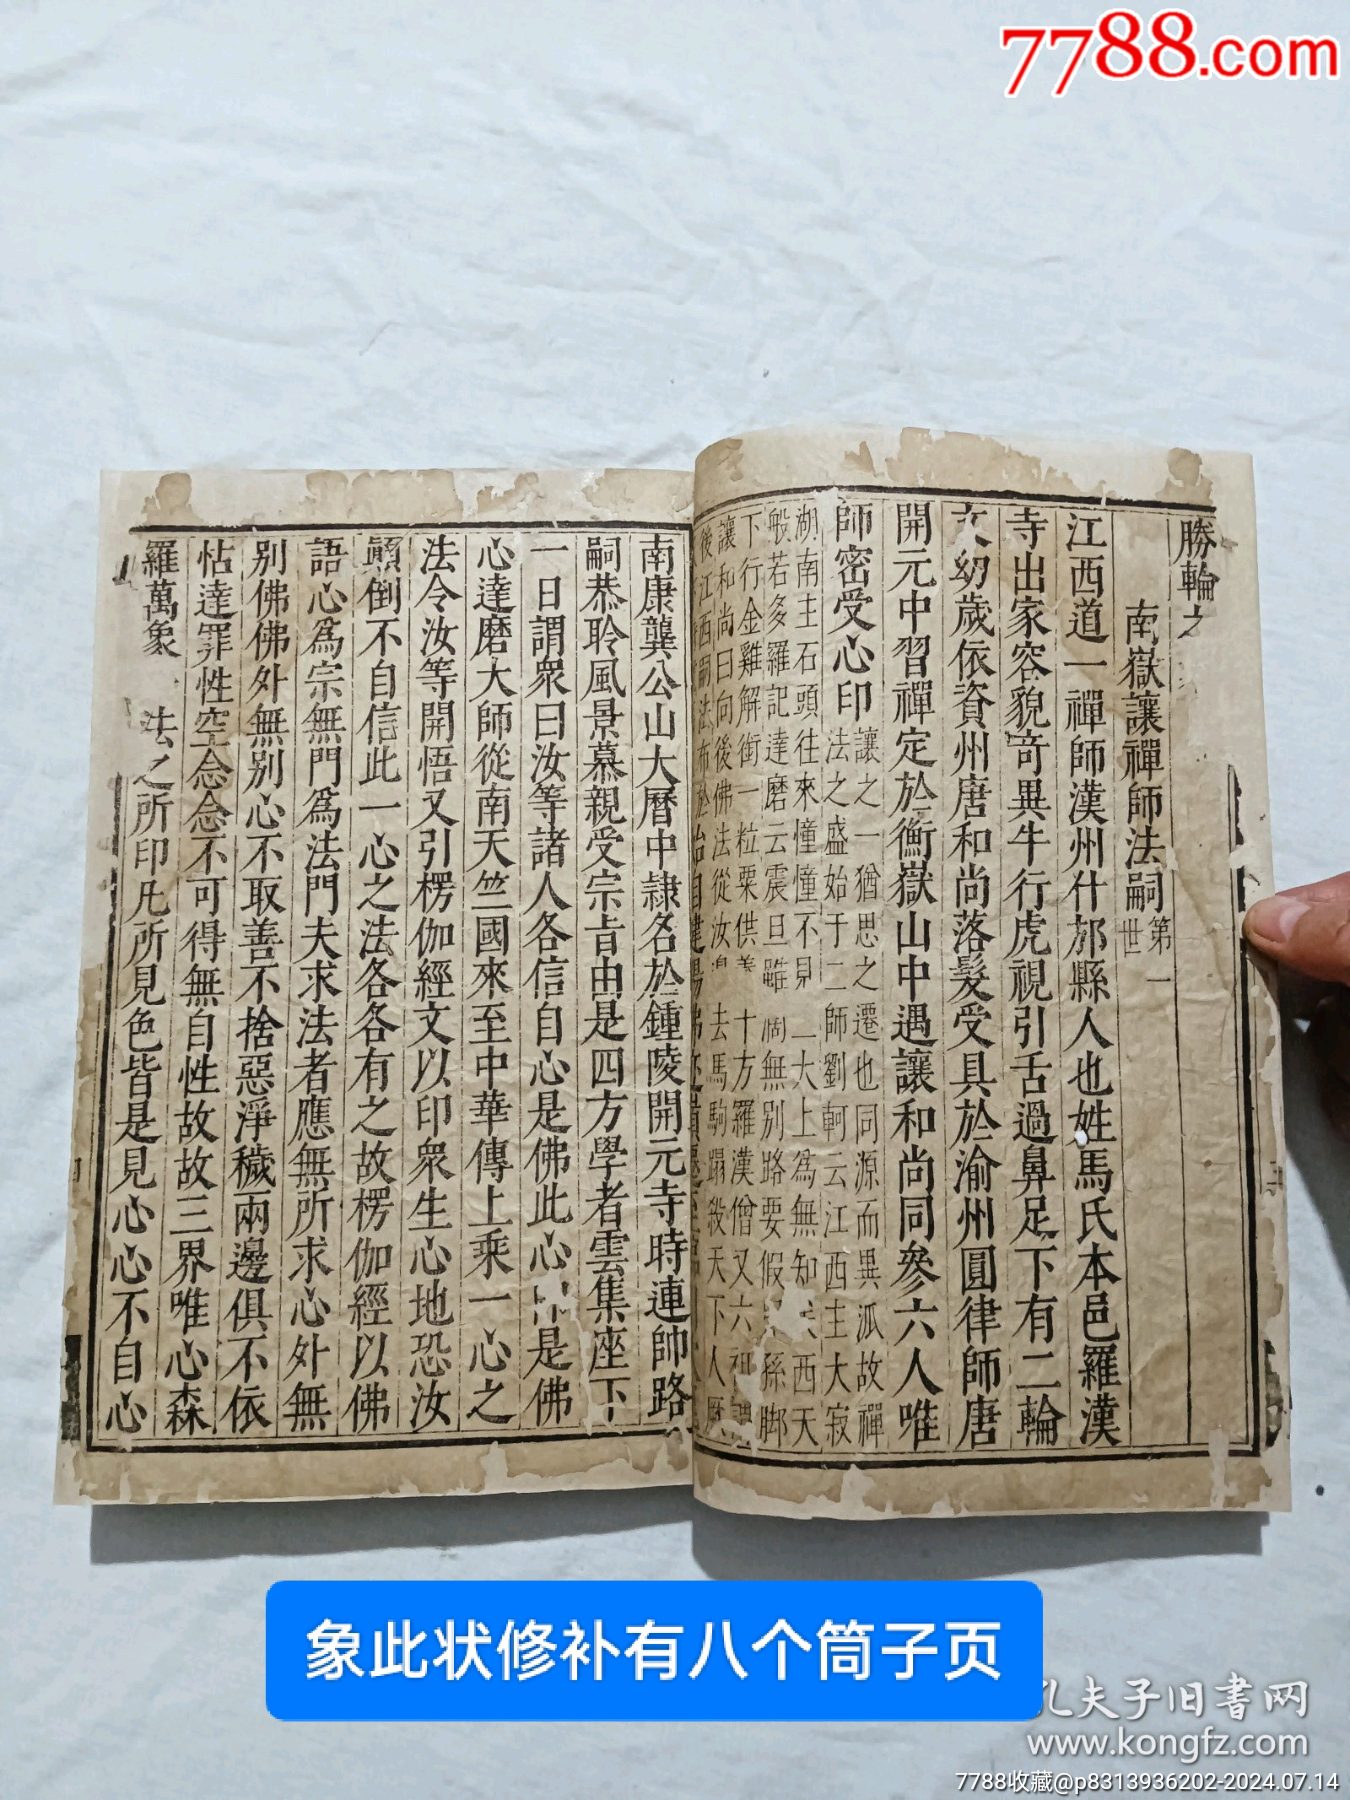 7788.com
勝輪之
南嶽讓禪師法嗣第一世
江西道一禪師漢州什邡縣人也姓馬氏本邑羅漢
寺出家容貌竒異牛行虎視引舌過鼻足下有二輪
文幼歲依資州唐和尚落髮受具於渝州圓律師唐
開元中習禪定於衡嶽山中遇讓和尚同參六人唯
師密受心印讓之一猶思之遷也同源而異派故禪
法之盛始于二師劉軻云江西主大寂
湖南主石頭往來憧憧不見二大上為無知矣西天
般若多羅記達磨云震旦雖闊無別路要假孫脚
下行金雞解銜一粒粟供養十方羅漢僧又六祖
讓和尚曰向後佛法從汝邊去馬駒蹋殺天下人厥
後江西嗣法布於
南康龔公山大曆中隷名於鍾陵開元寺時連帥路
嗣恭聆風景慕親受宗旨由是四方學者雲集座下
一日謂衆曰汝等諸人各信自心是佛此心是佛
心達磨大師從南天竺國來至中華傳上乘一心之
法令汝等開悟又引楞伽經文以印衆生心地恐汝
顚倒不自信此一心之法各各有之故楞伽經以佛
語心爲宗無門爲法門夫求法者應無所求心外無
別佛佛外無別心不取善不捨惡淨穢兩邊俱不依
怙達罪性空念念不可得無自性故故三界唯心森
羅萬象法之所印凡所見色皆是見心心不自心
象此状修补有八个筒子页
孔夫子旧書网
www.kongfz.com
7788收藏@p8313936202-2024.07.14